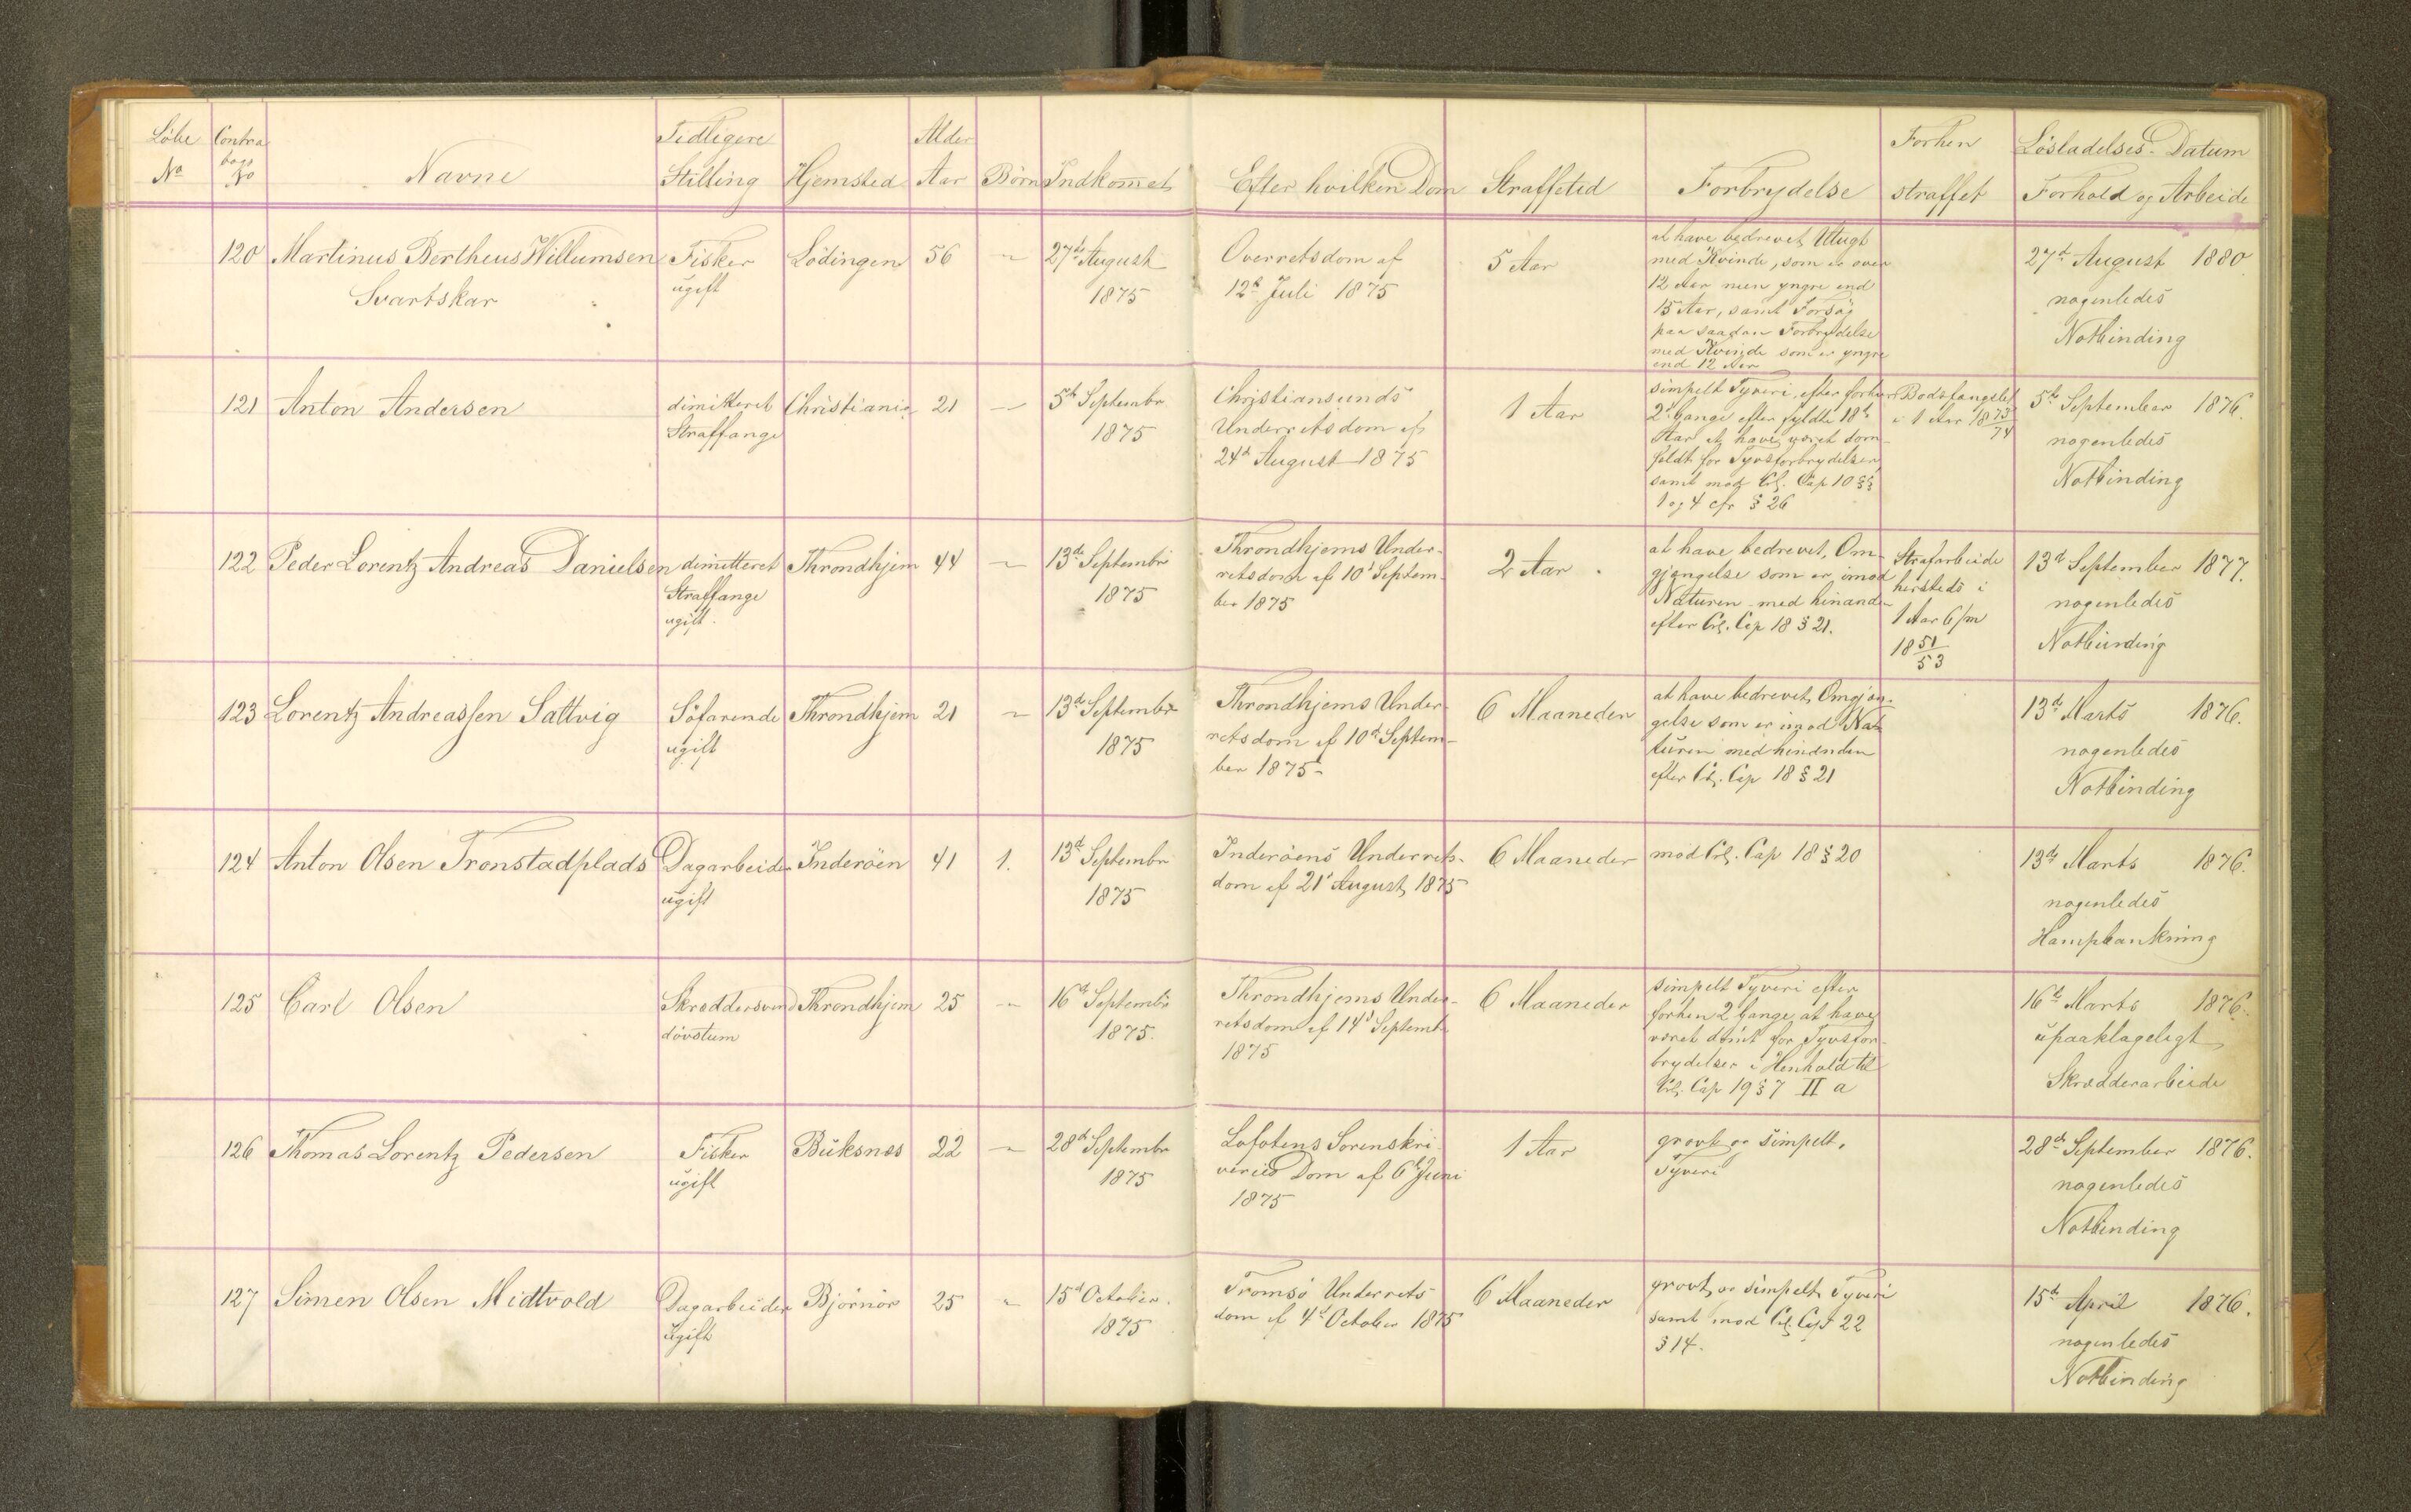 Löbe Contra Tidligere Alder Forhen Lösladelses-Datum
No bogs No Navne Stilling Hjemsted Aar Börn Indkomet Efter hvilken Dom Straffetid Forbrydelse straffet Forhold og Arbeide
120 Martinus Bertheus Willumsen
Svartskar
Fisker
ugift
Lödingen
56
—
27de August
1875
Overretsdom af
12te Juli 1875
5 Aar
at have bedrevet Utugt
med Kvinde, som er over
12 Aar men yngre end
15 Aar, samt Forsög
paa saadan Forbrydelse
med Kvinde som er yngre
end 12 Aar
27de August 1880
nogenledes
Notbinding
121 Anton Andersen
dimitteret
Straffange
Christiania
21
—
5te Septembr
1875
Christiansunds
Underretsdom af
24de August 1875
1 Aar
simpelt Tyveri, efter forhen
2 Gange efter fyldte 18de
Aar at have været dom-
fældt for Tyvsforbrydelser,
samt mod Crl. Cap 10 §§
1 og 4 cfr § 26
Bodsfængslet
i 1 Aar 1873/74
5te September 1876.
nogenledes
Notbinding
122 Peder Lorentz Andreas Danielsen
dimitteret
Straffange
ugift.
Throndhjem
44
—
13de Septembr
1875
Throndhjems Under-
retsdom af 10d Septem-
ber 1875
2 Aar.
at have bedrevet Om-
gjængelse som er imod
Naturen med hinanden
efter Crl. Cap 18 § 21.
Strafarbeide
hersteds i
1 Aar 6/m
1851/53
13de September 1877.
nogenledes
Notbinding
123 Lorentz Andreassen Saltvig
Söfarende
ugift
Throndhjem
21
—
13de Septembr
1875
Throndhjems Under-
retsdom af 10de Septem-
ber 1875-
6 Maaneder
at have bedrevet Omgjæn-
gelse som er imod Na-
turen med hinanden
efter Crl. Cap 18 § 21
13de Marts 1876.
nogenledes
Notbinding
124 Anton Olsen Tronstadplads
Dagarbeider
ugift
Inderöen
41
1.
13de Septembr
1875
Inderöens Underrets-
dom af 21d August 1875
6 Maaneder
mod Crl. Cap 18 § 20
13de Marts 1876.
nogenledes
Hampbankning
125 Carl Olsen
Skræddersvend
dövstum
Throndhjem
25
—
16de Septembr
1875.
Throndhjems Under-
retsdom af 14d Septembr
1875
6 Maaneder
simpelt Tyveri efter
forhen 2 Gange at have
været dömt for Tyvsfor-
brydelser i Henhold til
Crl. Cap 19 § 7 II a
16de Marts 1876.
upaaklageligt
Skrædderarbeide
126 Thomas Lorentz Pedersen
Fisker
ugift
Buksnæs
22
—
28de Septembr
1875
Lofotens Sorenskri-
veries Dom af 6te Juni
1875
1 Aar
grovt og simpelt
Tyveri
28de September 1876.
nogenledes
Notbinding
127 Simen Olsen Midtvold
Dagarbeider
ugift
Björnör
25
—
15de October.
1875
Tromsö Underrets-
dom af 4de October 1875
6 Maaneder
grovt og simpelt Tyveri
samt mod Crl. Cap 22
§ 14.
15de April 1876.
nogenledes
Notbinding